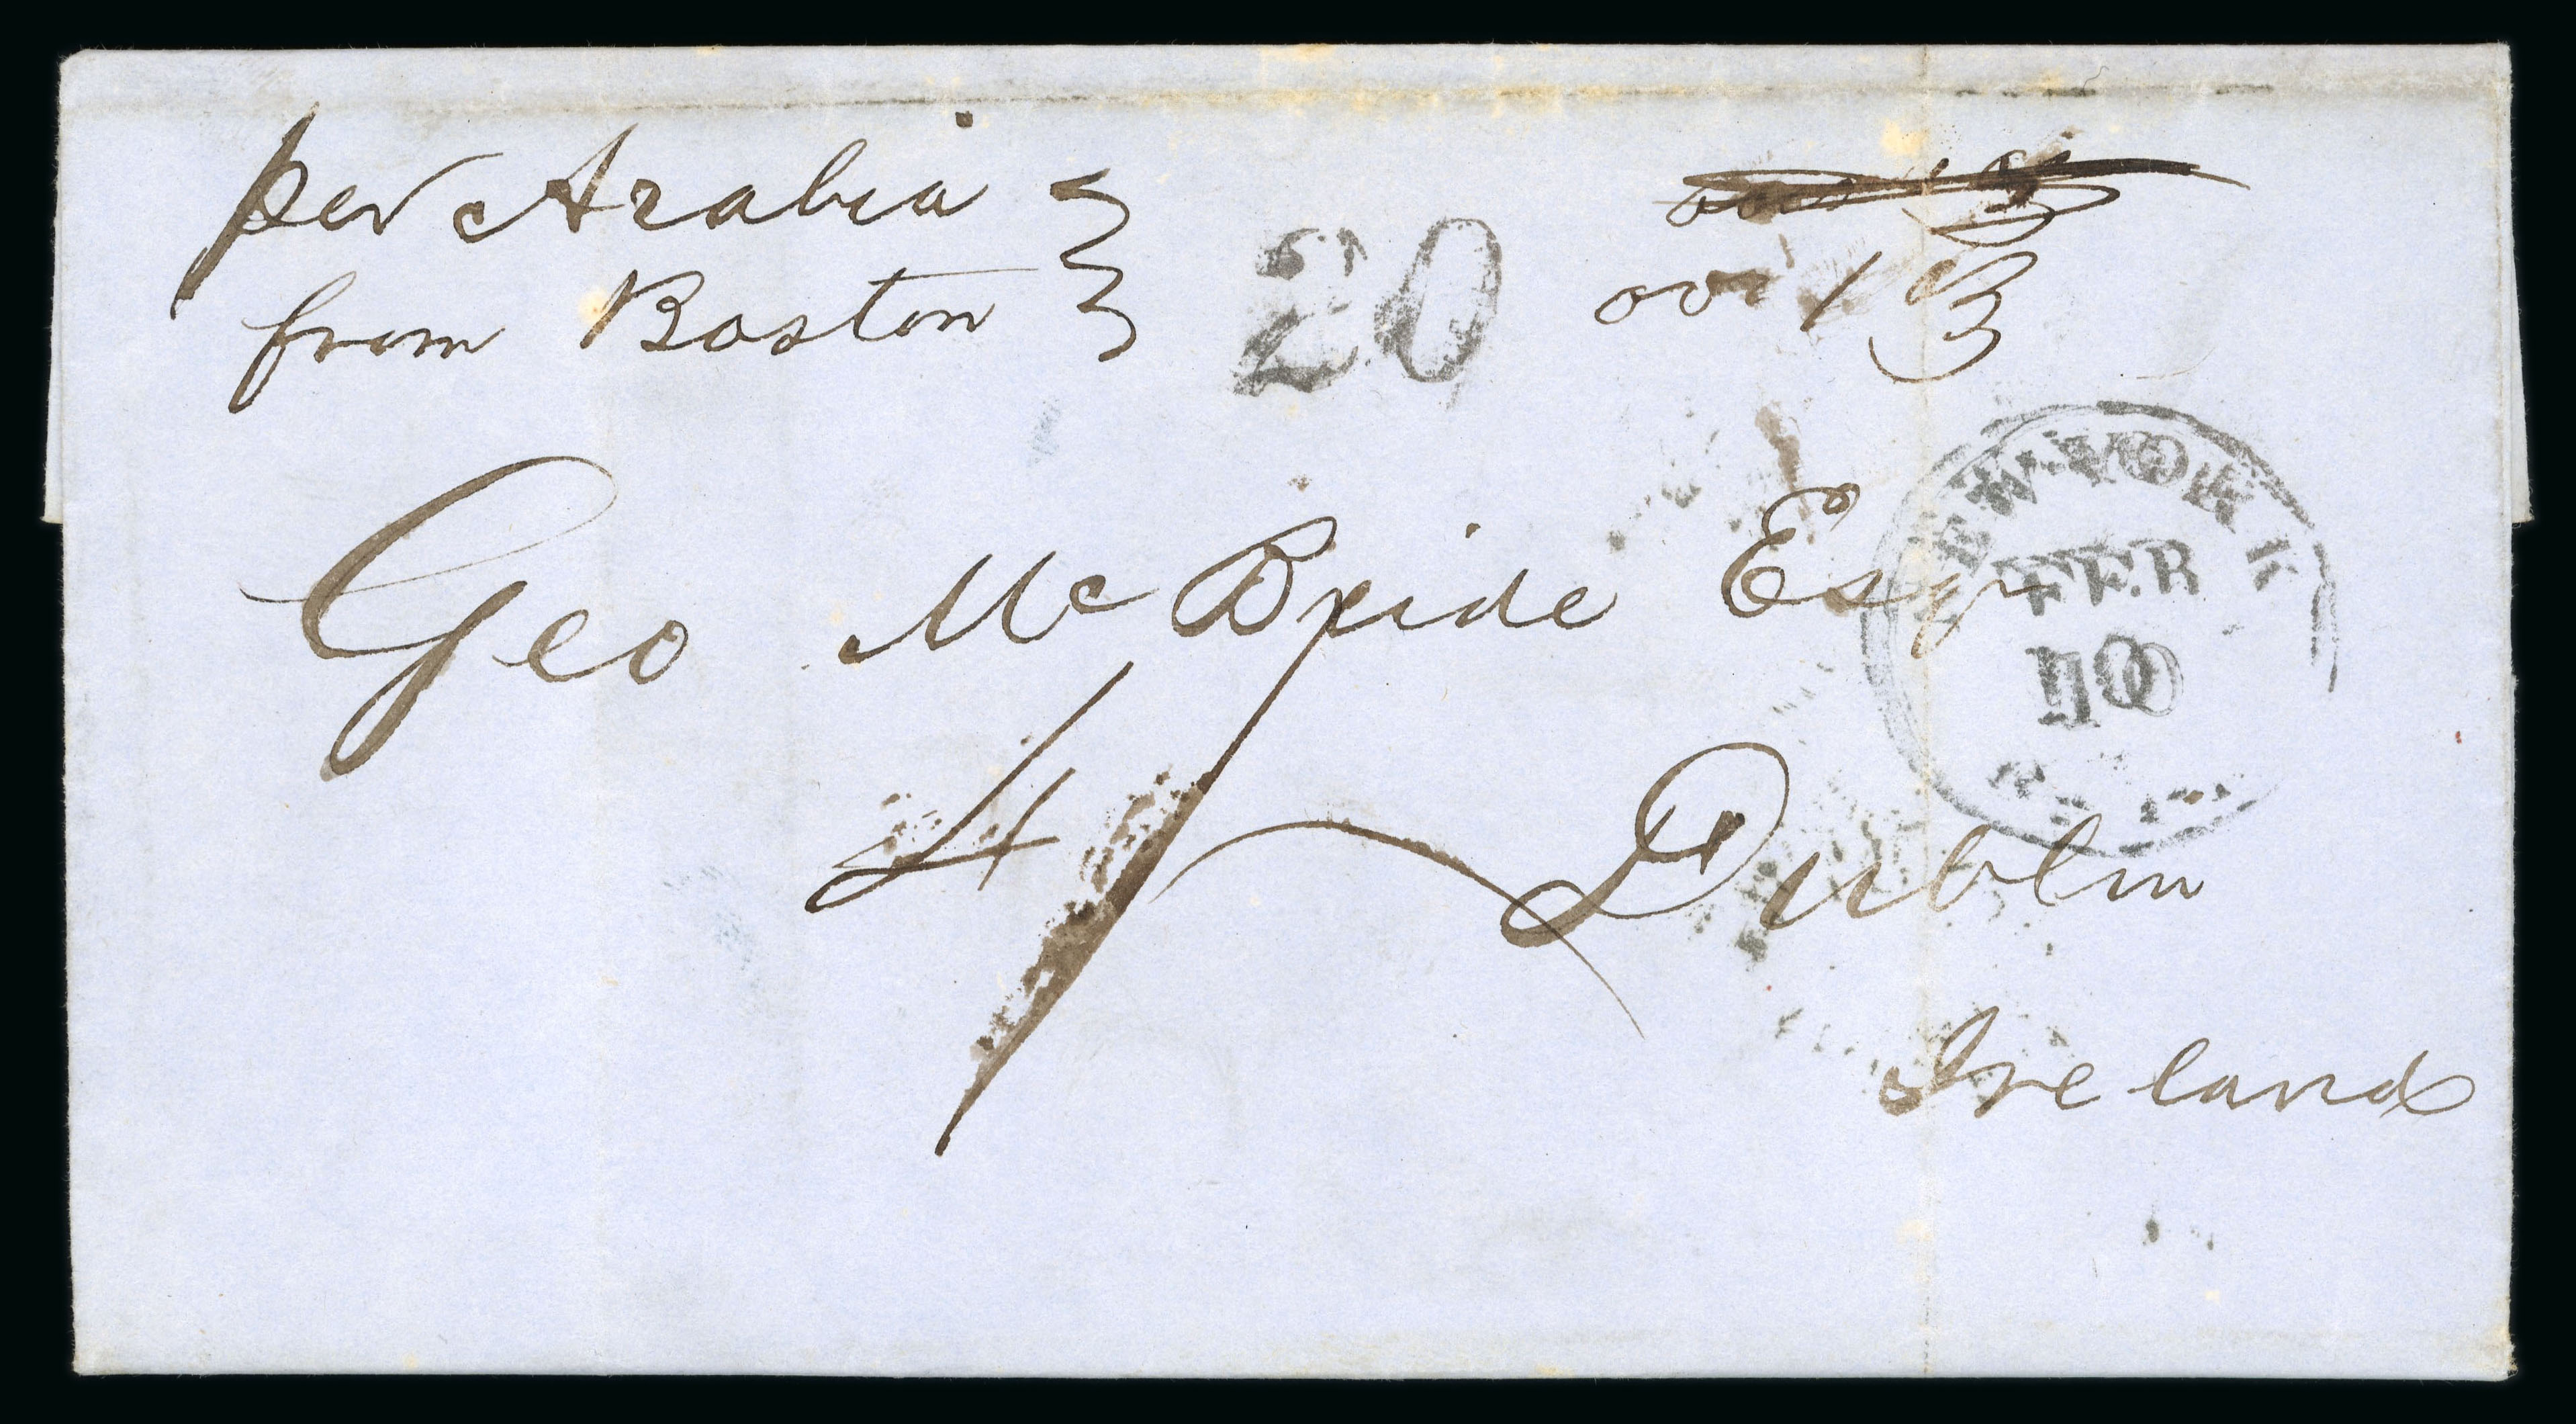 per Arabia
from Boston
20
over 1 3
NEW-YORK
FEB
10
Geo McBride Esqr
4/
Dublin
Ireland